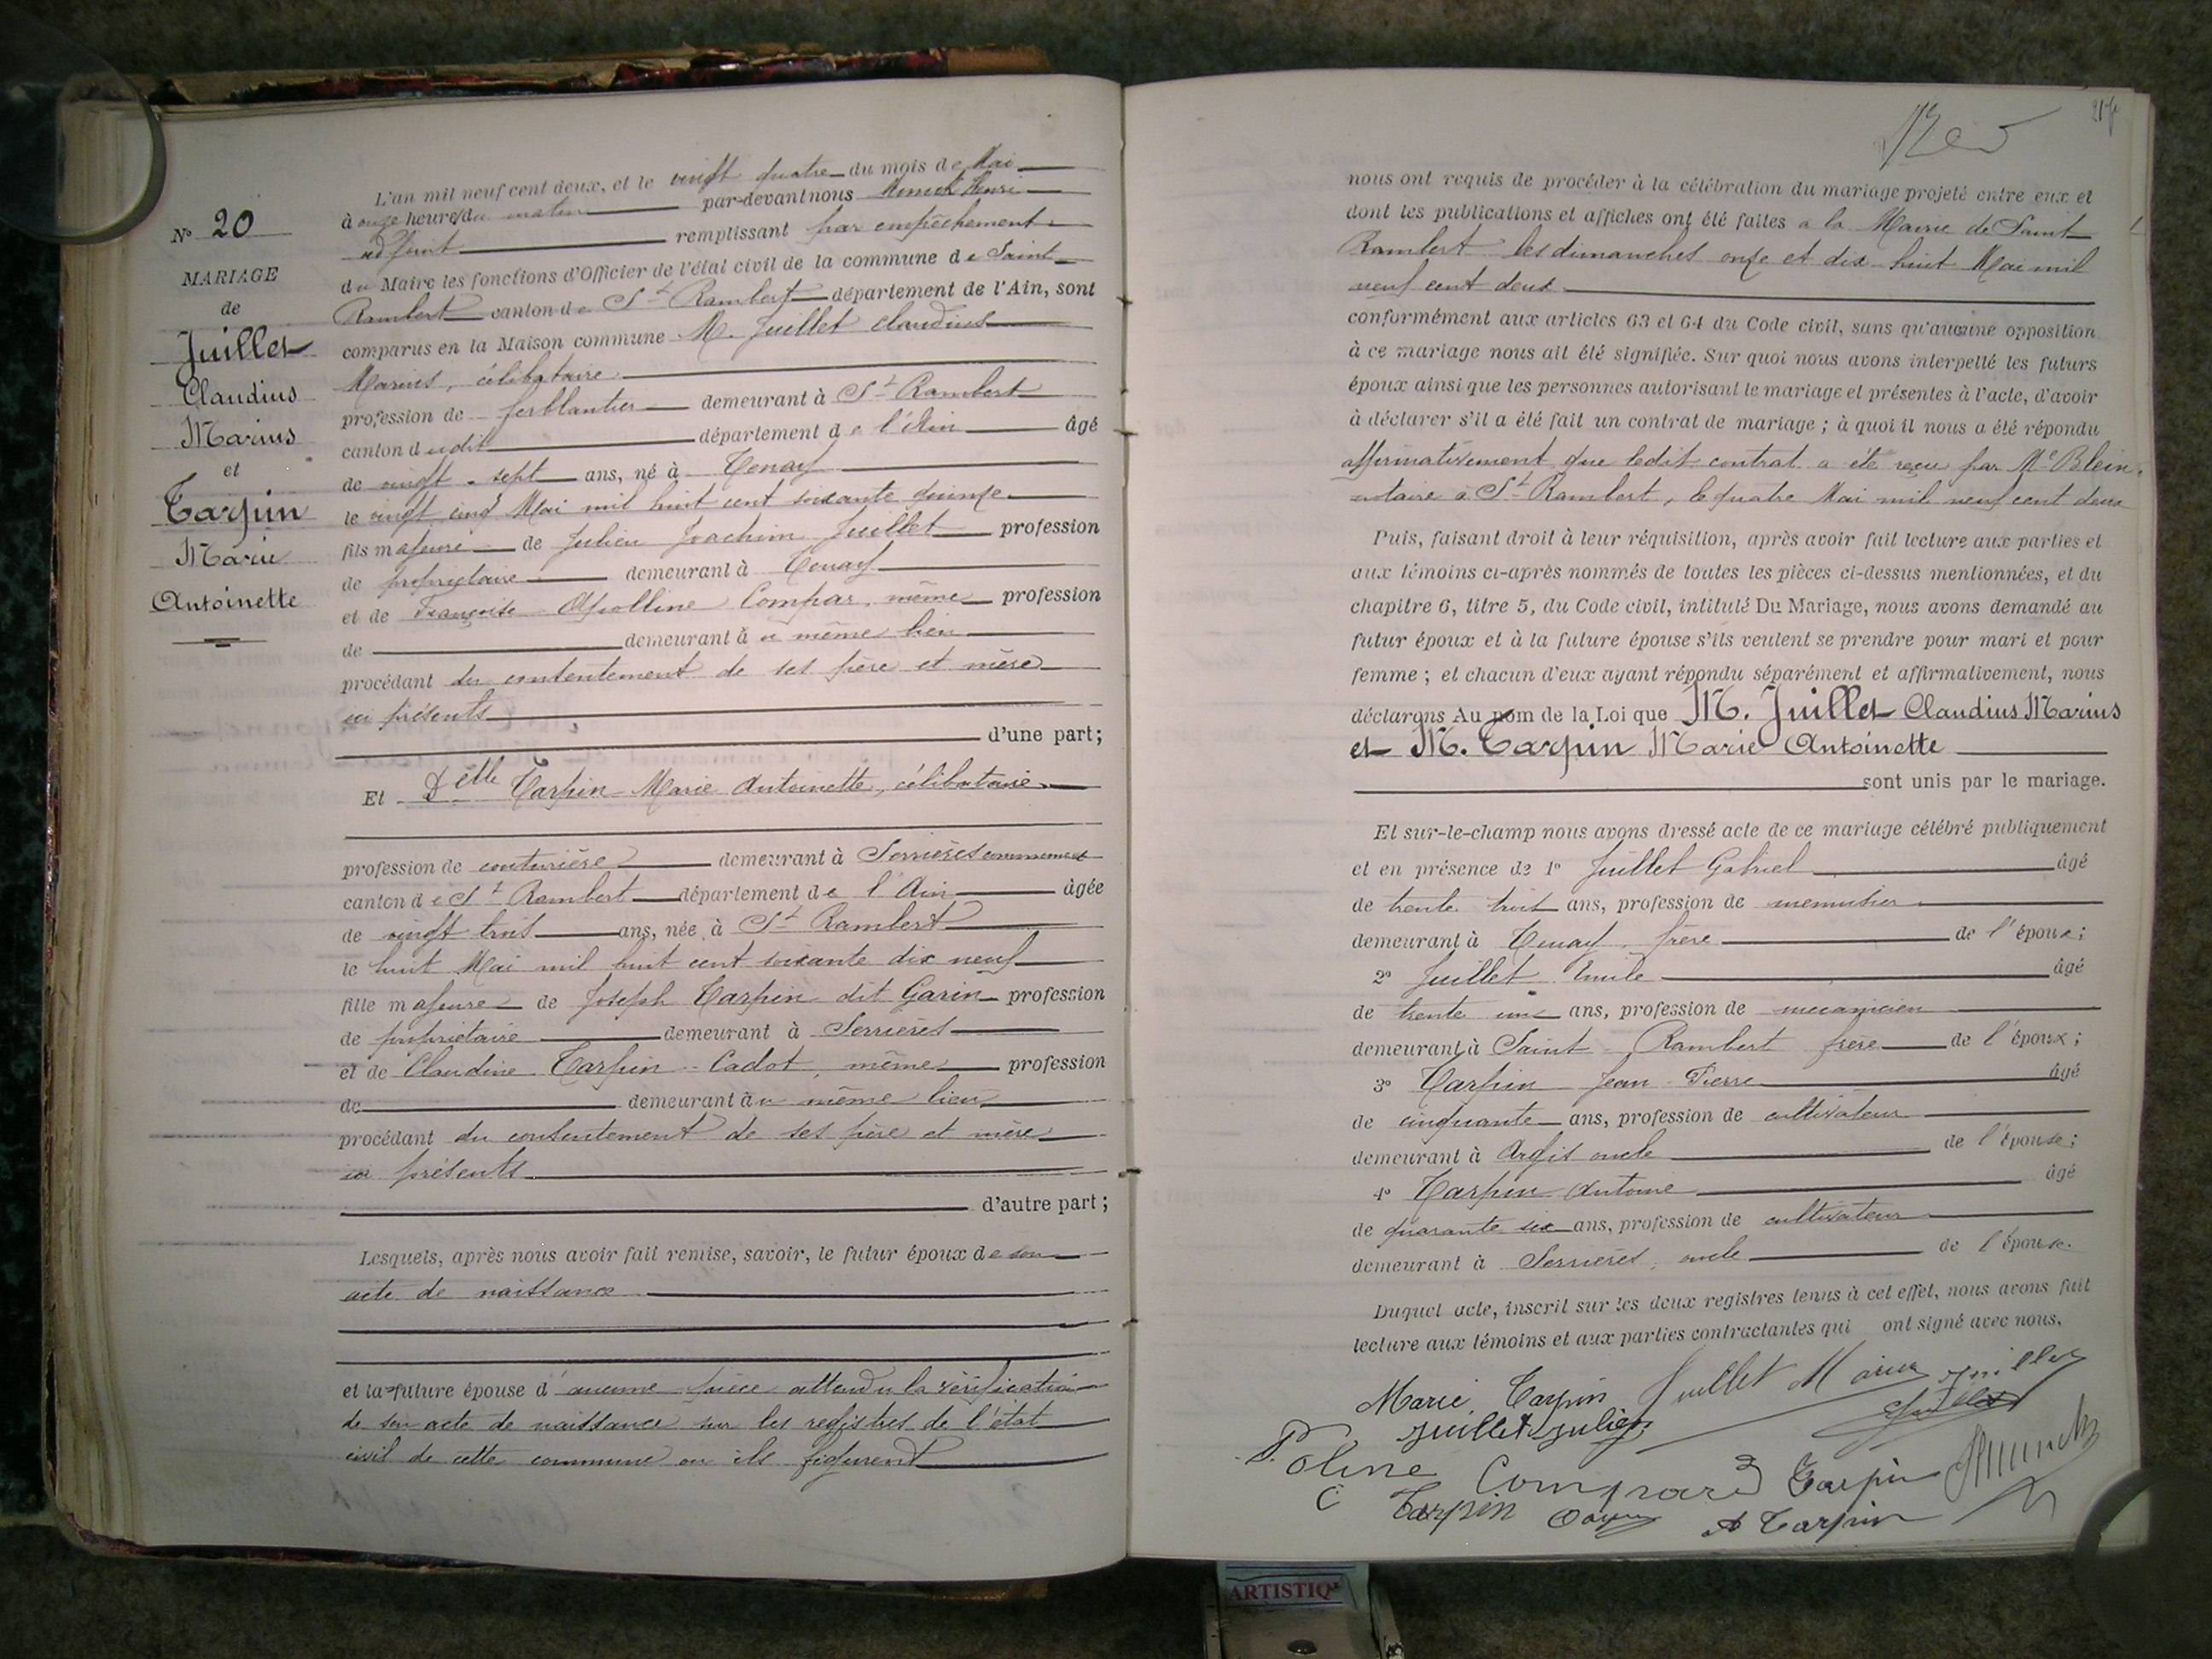 N° 20
MARIAGE
de
Juillet
Claudius
Marius
et
Tarpin
Marie
Antoinette
L'an mil neuf cent deux, et le vingt quatre du mois de Mai
à onze heures du matin par-devant nous Henri
adjoint remplissant par empêchement
du Maire les fonctions d'Officier de l'état civil de la commune de Saint
Rambert canton de St Rambert département de l'Ain, sont
comparus en la Maison commune M. Juillet Claudius
Marius, célibataire
profession de ferblantier demeurant à St Rambert
canton dudit département de l'Ain âgé
de vingt-sept ans, né à Tenay
le vingt cinq Mai mil huit cent soixante quinze
fils majeur de Julien Joachim Juillet profession
de propriétaire demeurant à Tenay
et de Françoise Apolline Compar, même profession
de demeurant à u même lieu
procédant du consentement de ses père et mère
ici présents
d'une part;
Et Delle Tarpin Marie Antoinette, célibataire
profession de couturière demeurant à Serrières
canton de St Rambert département de l'Ain âgée
de vingt trois ans, née à St Rambert
le huit Mai mil huit cent soixante dix neuf
fille majeure de Joseph Tarpin dit Garin profession
de propriétaire demeurant à Serrières
et de Claudine Tarpin-Cadot, même profession
de demeurant à u même lieu
procédant du consentement de ses père et mère
ici présents
d'autre part;
Lesquels, après nous avoir fait remise, savoir, le futur époux de son
acte de naissance
et la future épouse d'aucune pièce attendu la vérification
de son acte de naissance sur les registres de l'état
civil de cette commune où ils figurent
217
nous ont requis de procéder à la célébration du mariage projeté entre eux et
dont les publications et affiches ont été faites à la Mairie de Saint
Rambert les dimanches onze et dix-huit Mai mil
neuf cent deux
conformément aux articles 63 et 64 du Code civil, sans qu'aucune opposition
à ce mariage nous ait été signifiée. Sur quoi nous avons interpellé les futurs
époux ainsi que les personnes autorisant le mariage et présentes à l'acte, d'avoir
à déclarer s'il a été fait un contrat de mariage; à quoi il nous a été répondu
affirmativement que ledit contrat a été reçu par Me Blein,
notaire à St Rambert, le quatre Mai mil neuf cent deux
Puis, faisant droit à leur réquisition, après avoir fait lecture aux parties et
aux témoins ci-après nommés de toutes les pièces ci-dessus mentionnées, et du
chapitre 6, titre 5, du Code civil, intitulé Du Mariage, nous avons demandé au
futur époux et à la future épouse s'ils veulent se prendre pour mari et pour
femme; et chacun d'eux ayant répondu séparément et affirmativement, nous
déclarons Au nom de la Loi que M. Juillet Claudius Marius
et M. Tarpin Marie Antoinette
sont unis par le mariage.
Et sur-le-champ nous avons dressé acte de ce mariage célébré publiquement
et en présence de 1° Juillet Gabriel âgé
de trente trois ans, profession de menuisier
demeurant à Tenay, frère de l'époux;
2° Juillet Emile âgé
de trente un ans, profession de mécanicien
demeurant à Saint-Rambert frère de l'époux;
3° Tarpin Jean-Pierre âgé
de cinquante ans, profession de cultivateur
demeurant à Argis oncle de l'épouse;
4° Tarpin Antoine âgé
de quarante six ans, profession de cultivateur
demeurant à Serrières, oncle de l'épouse.
Duquel acte, inscrit sur les deux registres tenus à cet effet, nous avons fait
lecture aux témoins et aux parties contractantes qui ont signé avec nous.
Marie Tarpin Juillet Marius Juillet
Juillet Julien Juillet
Poline Compard Tarpin
C Tarpin A Tarpin
ARTISTIQ